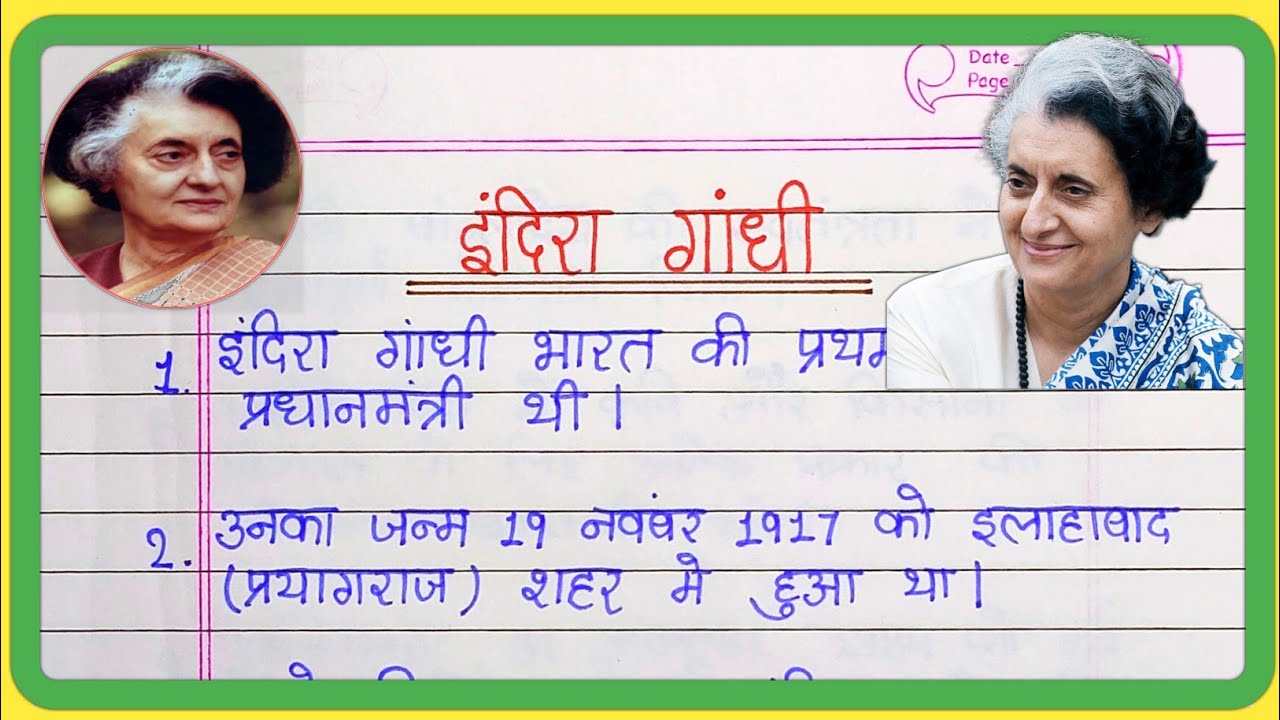 Date
Page
इंदिरा गांधी
1. इंदिरा गांधी भारत की
प्रधानमंत्री थी।
2. उनका जन्म 19 नवंबर 1917 को इलाहाबाद
(प्रयागराज) शहर मे हुआ था।